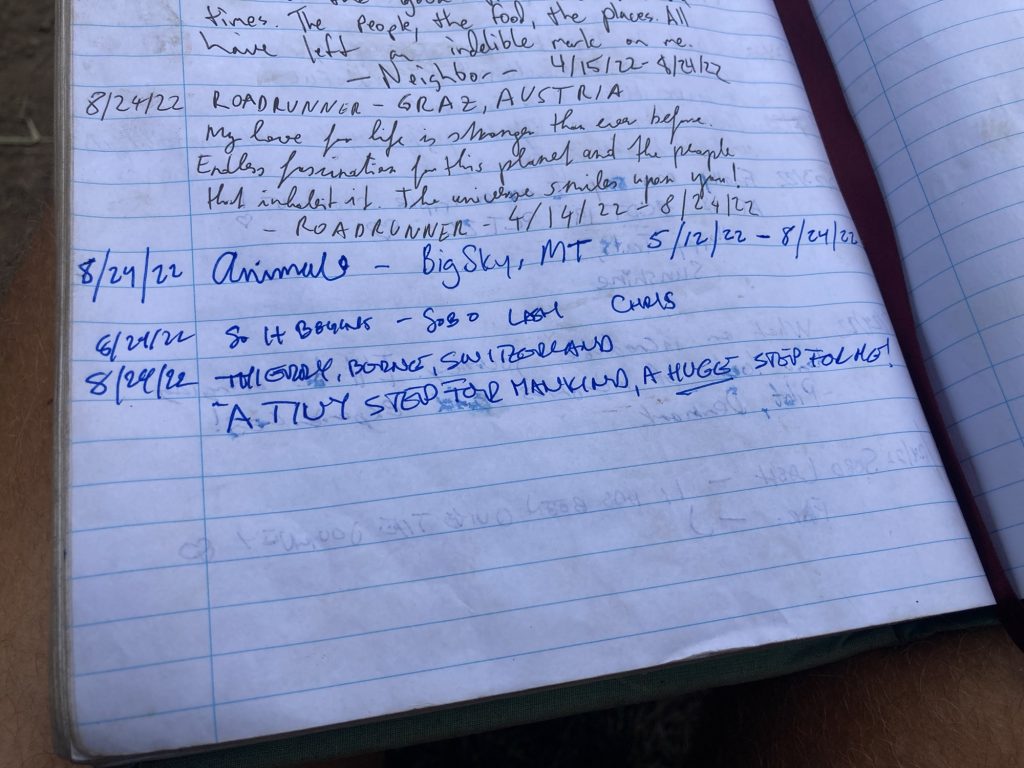 times. The people, the food, the places. All
have left an indelible mark on me.
- Neighbor - 4/15/22 - 8/24/22
8/24/22 ROADRUNNER - GRAZ, AUSTRIA
My love for life is stronger than ever before.
Endless fascination for this planet and the people
that inhabit it. The universe smiles upon you!
- ROADRUNNER - 4/14/22 - 8/24/22
8/24/22 Animal - Big Sky, MT 5/12/22 - 8/24/22
8/24/22 So It Begins - SOBO LASH CHRIS
8/24/22 THIERRY, BERNE, SWITZERLAND
"A TINY STEP FOR MANKIND, A HUGE STEP FOR ME!